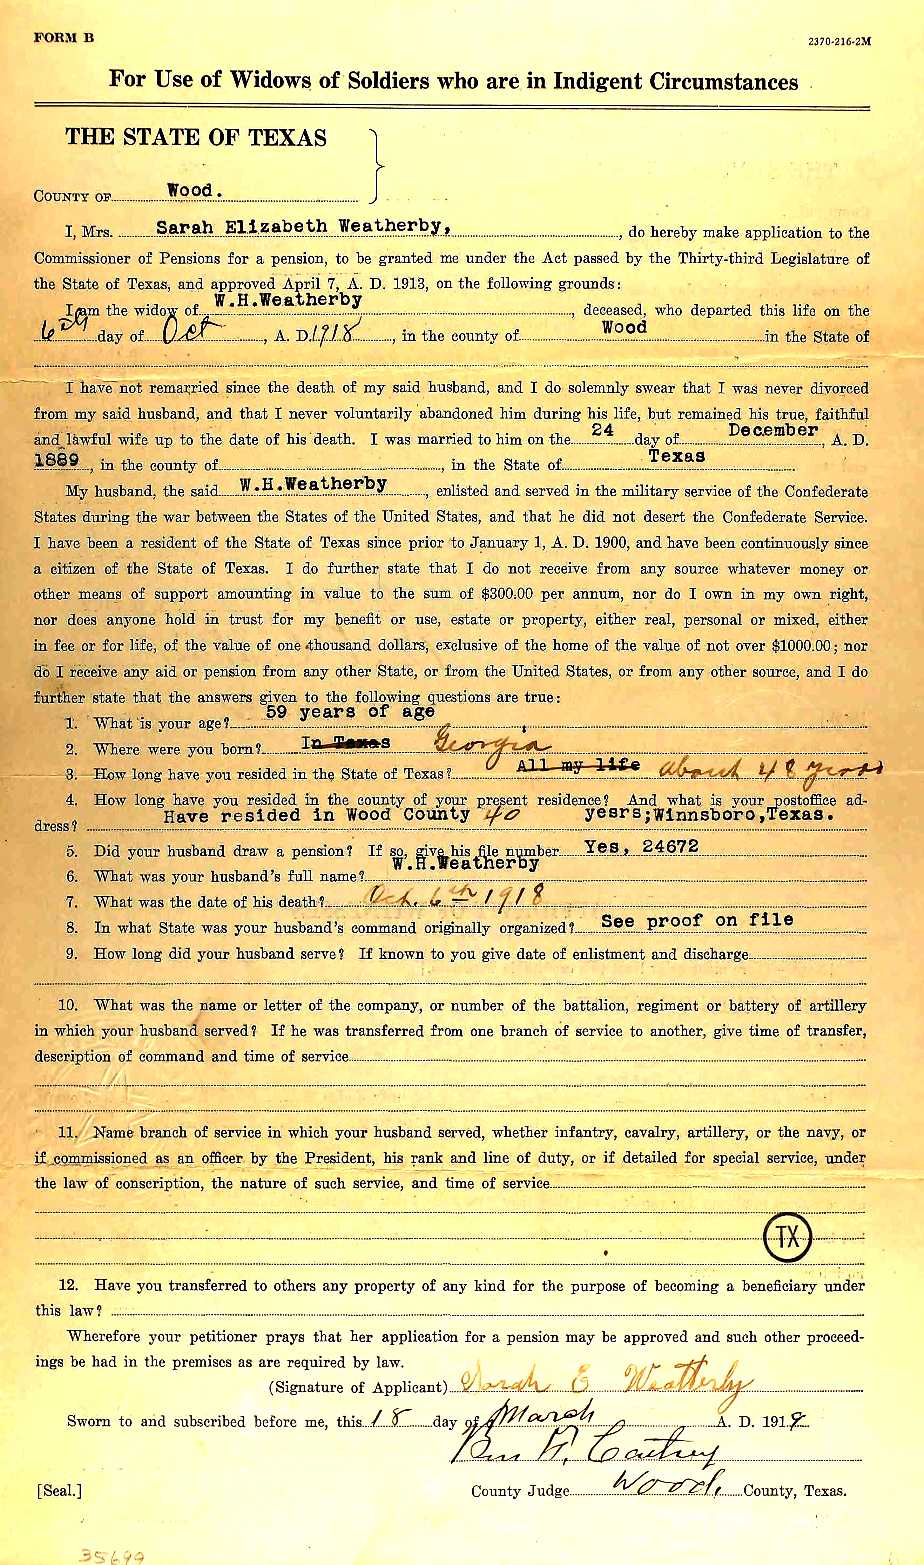 FORM B
2370-216-2M
For Use of Widows of Soldiers who are in Indigent Circumstances
THE STATE OF TEXAS
COUNTY OF Wood.
I, Mrs. Sarah Elizabeth Weatherby, do hereby make application to the
Commissioner of Pensions for a pension, to be granted me under the Act passed by the Thirty-third Legislature of
the State of Texas, and approved April 7, A. D. 1913, on the following grounds:
I am the widow of W.H.Weatherby, deceased, who departed this life on the
6th day of Oct, A. D. 1918, in the county of Wood in the State of
I have not remarried since the death of my said husband, and I do solemnly swear that I was never divorced
from my said husband, and that I never voluntarily abandoned him during his life, but remained his true, faithful
and lawful wife up to the date of his death. I was married to him on the 24 day of December, A. D.
1889, in the county of, in the State of Texas
My husband, the said W.H.Weatherby, enlisted and served in the military service of the Confederate
States during the war between the States of the United States, and that he did not desert the Confederate Service.
I have been a resident of the State of Texas since prior to January 1, A. D. 1900, and have been continuously since
a citizen of the State of Texas. I do further state that I do not receive from any source whatever money or
other means of support amounting in value to the sum of $300.00 per annum, nor do I own in my own right,
nor does anyone hold in trust for my benefit or use, estate or property, either real, personal or mixed, either
in fee or for life, of the value of one thousand dollars, exclusive of the home of the value of not over $1000.00; nor
do I receive any aid or pension from any other State, or from the United States, or from any other source, and I do
further state that the answers given to the following questions are true:
1. What is your age? 59 years of age
2. Where were you born? In Texas Georgia
3. How long have you resided in the State of Texas? All my life about 48 years
4. How long have you resided in the county of your present residence? And what is your postoffice ad-
dress? Have resided in Wood County 40 yesrs;Winnsboro,Texas.
5. Did your husband draw a pension? If so, give his file number Yes, 24672
6. What was your husband's full name? W.H.Weatherby
7. What was the date of his death? Oct. 6th 1918
8. In what State was your husband's command originally organized? See proof on file
9. How long did your husband serve? If known to you give date of enlistment and discharge
10. What was the name or letter of the company, or number of the battalion, regiment or battery of artillery
in which your husband served? If he was transferred from one branch of service to another, give time of transfer,
description of command and time of service
11. Name branch of service in which your husband served, whether infantry, cavalry, artillery, or the navy, or
if commissioned as an officer by the President, his rank and line of duty, or if detailed for special service, under
the law of conscription, the nature of such service, and time of service
TX
12. Have you transferred to others any property of any kind for the purpose of becoming a beneficiary under
this law?
Wherefore your petitioner prays that her application for a pension may be approved and such other proceed-
ings be had in the premises as are required by law.
(Signature of Applicant) Sarah E Weatherly
Sworn to and subscribed before me, this 18 day of March A. D. 1919
Ben F.
[Seal.] County Judge Wood, County, Texas.
35699